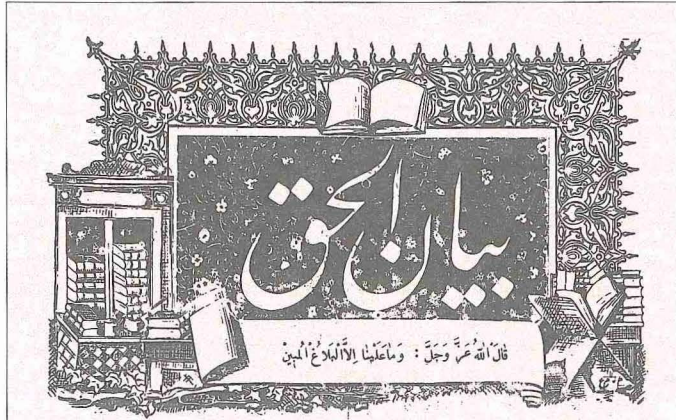 بيان الحق
قَالَ اللهُ عَزَّ وَجَلَّ : وَمَا عَلَيْنَا اِلَّا الْبَلَاغُ الْمُبِينْ